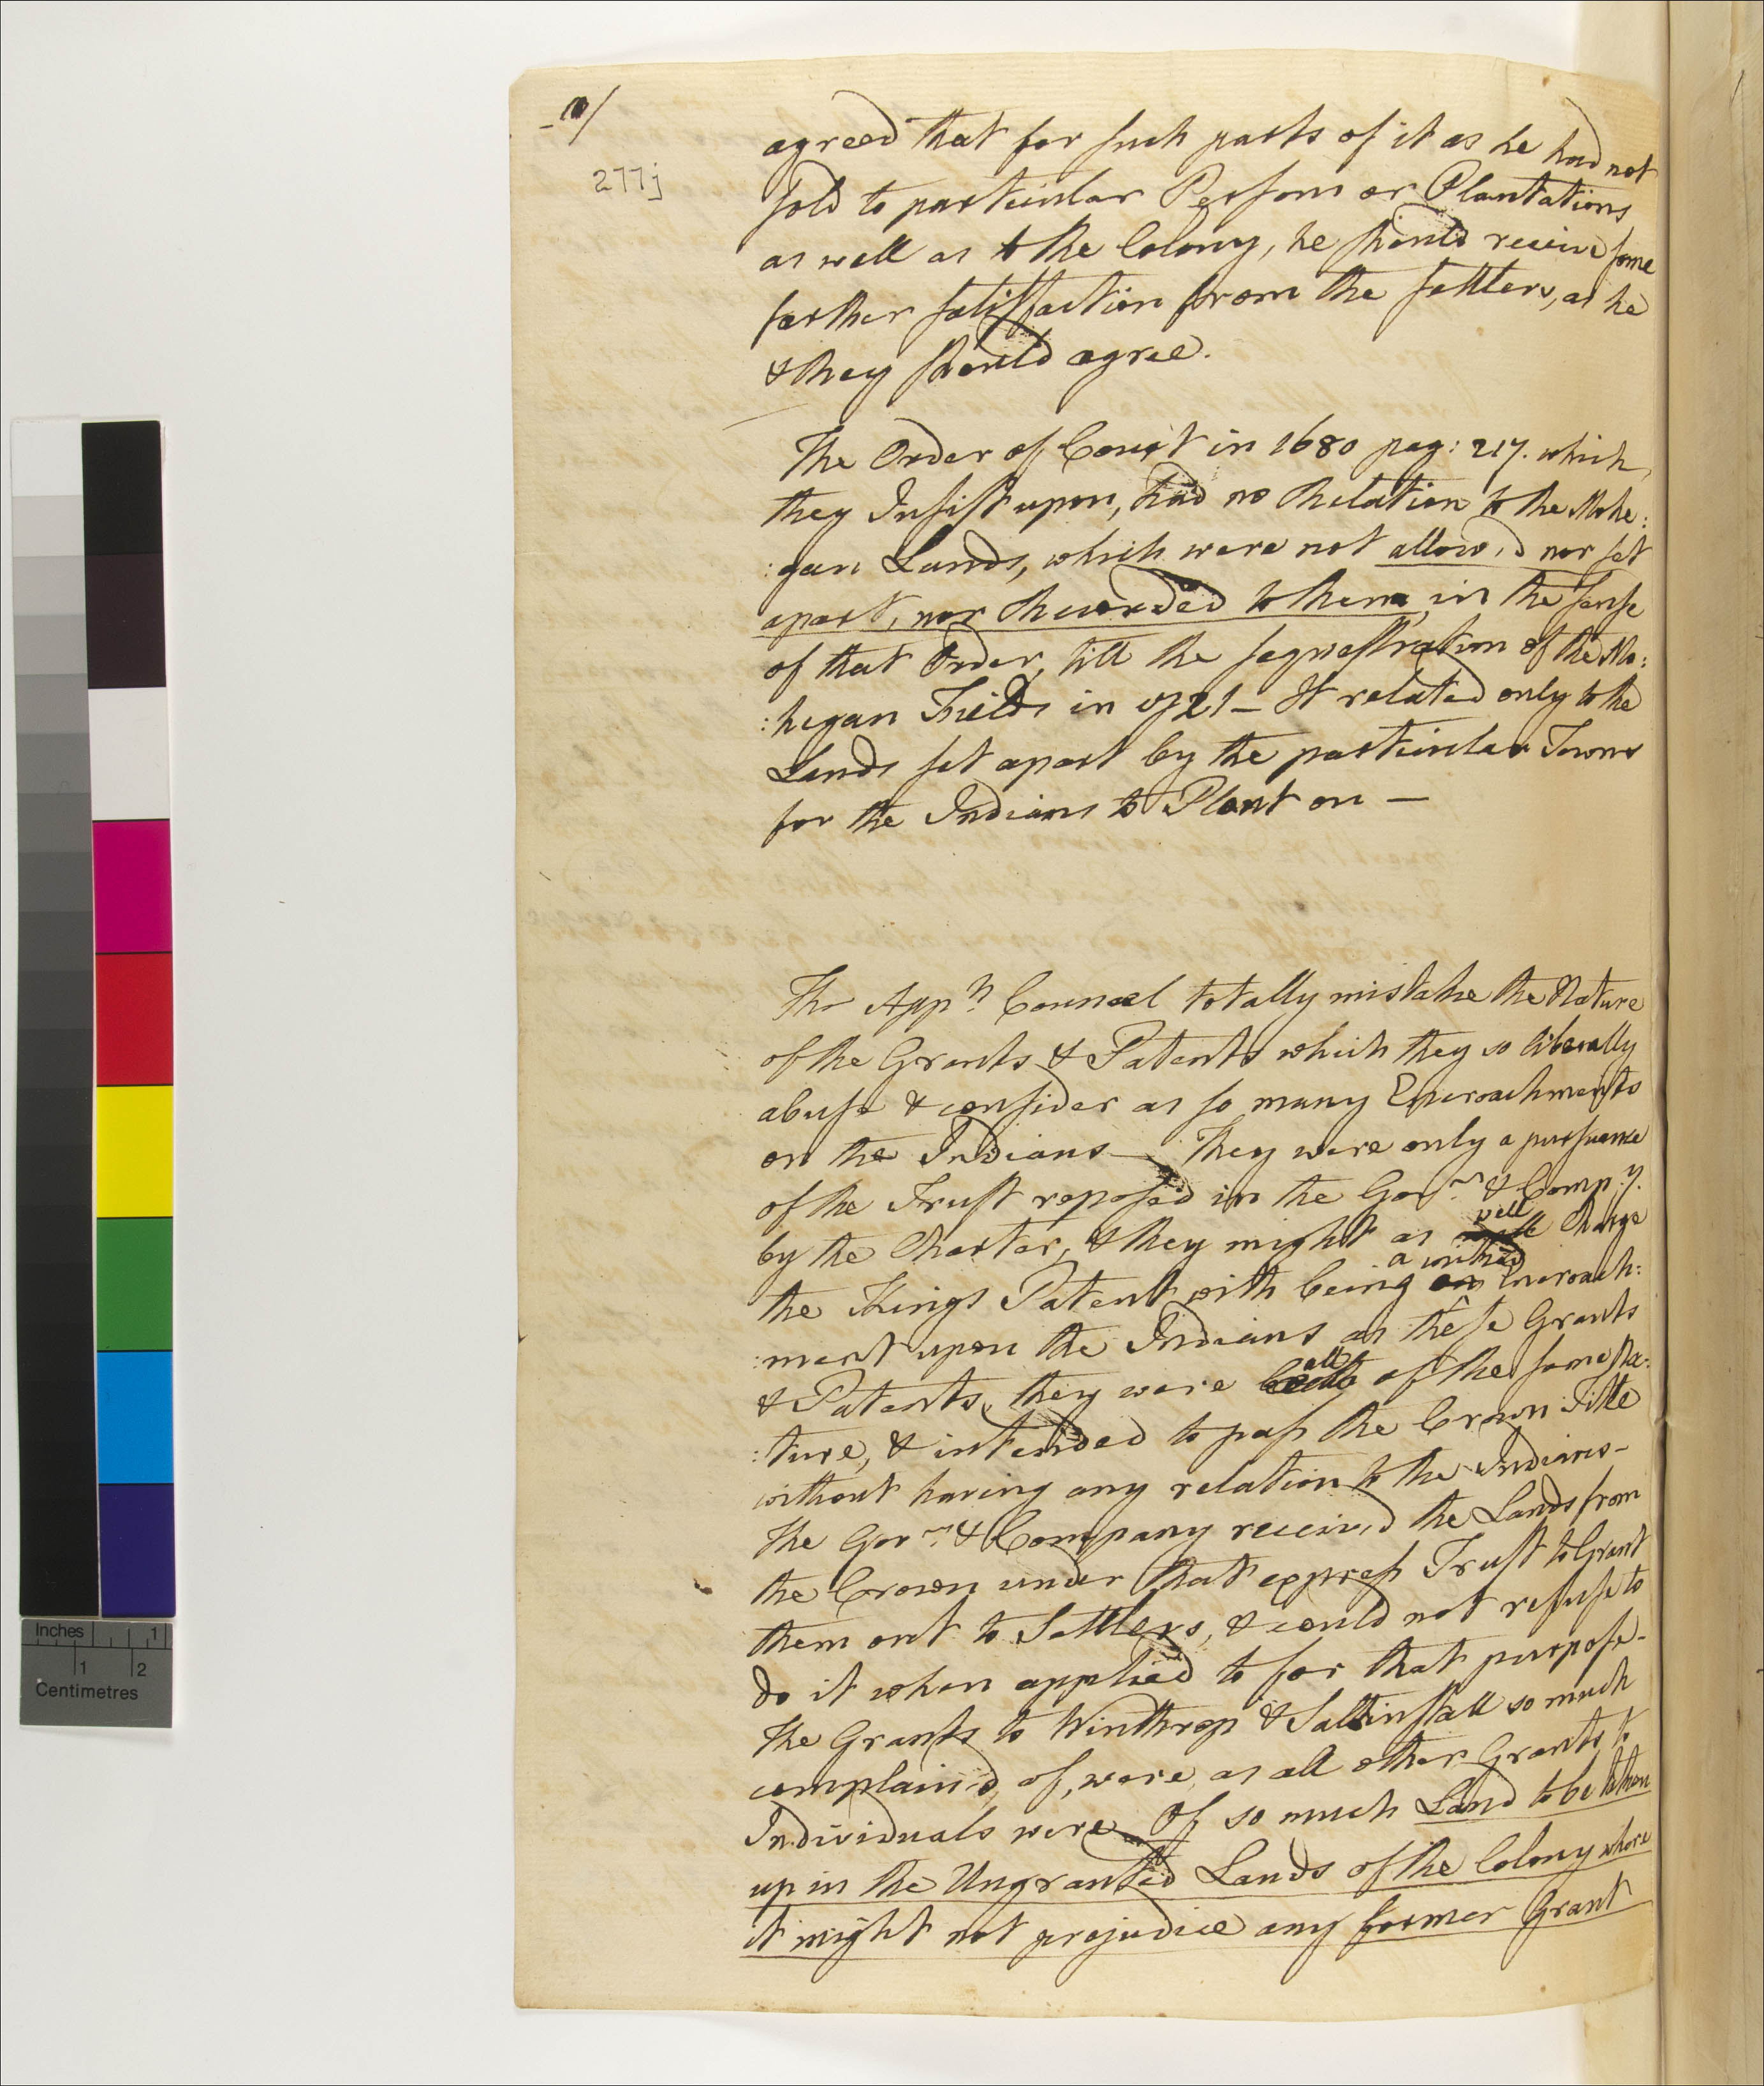 277j
agreed that for such parts of it as he had not
sold to particular Persons or Plantations
as well as to the Colony, he should receive some
farther satisfaction from the settlers, as he
& they should agree.
The Order of Court in 1680 pag: 217. which
they Insist upon, had no Relation to the Mohe:
:gan Lands, which were not allow'd nor set
apart, nor Recorded to them, in the sense
of that Order, till the sequestration of the Mo:
:hegan Fields in 1721 — It related only to the
Lands set apart by the particular Towns
for the Indians to Plant on —
The Appts Counsel totally mistake the Nature
of the Grants & Patents which they so liberally
abuse & consider as so many Encroachments
on the Indians — They were only a pursuance
of the Trust reposed in the Govr & Compy.
by the Charter, & they might as well Charge
the Kings Patent with being a wicked Encroach:
:ment upon the Indians as these Grants
& Patents, they were all of the same Na:
:ture, & intended to pass the Crown Title
without having any relation to the Indians –
The Govr & Company receiv'd the Lands from
the Crown under that express Trust to Grant
them out to Settlers, & could not refuse to
do it when applied to for that purpose –
The Grants to Winthrop & Saltinstall so much
complain'd of, were, as all other Grants to
Individuals were Of so much Land to be taken
up in the Ungranted Lands of the Colony where
it might not prejudice any former Grant
Inches 1
1 2
Centimetres